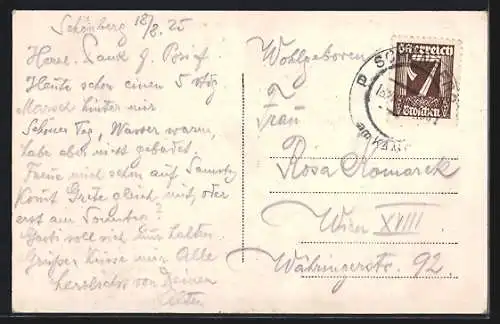 Schönberg 18/8. 25
Herzl. Dank f. Brief.
Heute schon einen 5 stdg
Marsch hinter mir
Schöner Tag, Wasser warm,
habe aber nicht gebadet.
Freue mich schon auf Samstag
Komt Grete gleich mit, oder
erst am Sonntag?
soll sich nur halten.
Grüsse Küsse nur Alle
herzlichst von Deinem
Alten
Wohlgeboren
Frau
Rosa Komarek
Wien XVIII
Währingerstr. 92.
Österreich
7
Groschen